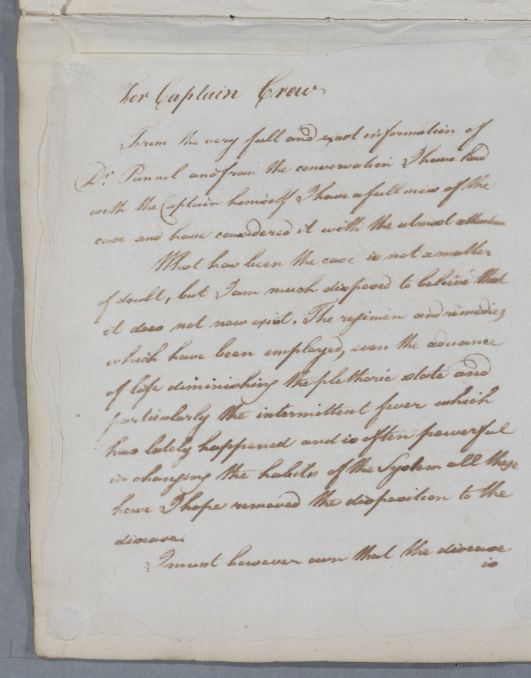 For Captain Crew
From the very full and exact information of
Dr. Pannel and from the conversation I have had
with the Captain himself I have a full view of the
case and have considered it with the utmost attention
What has been the case is not a matter
of doubt, but I am much disposed to believe that
it does not now exist. The regimen and remedies
which have been employed, even the advance
of life diminishing the plethoric state and
particularly the intermittent fever which
has lately happened and is often powerful
in changing the habits of the System all these
have I hope removed the disposition to the
disease.
I must however own that the disease
is